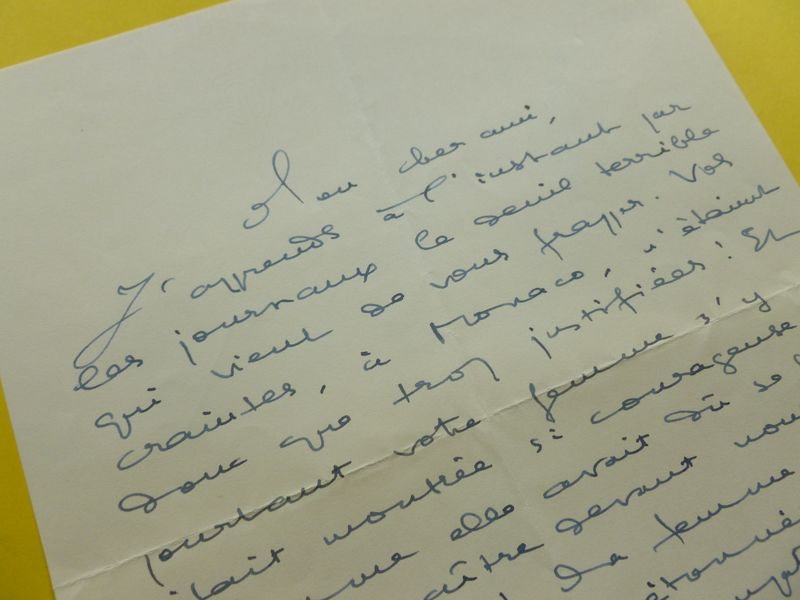 Mon cher ami,
J'apprends à l'instant par
les journaux le deuil terrible
qui vient de vous frapper. Vos
craintes, à Monaco, n'étaient
donc que trop justifiées ! Et
pourtant votre femme s'y
était montrée si courageuse
elle avait dû se
devant vous
femme